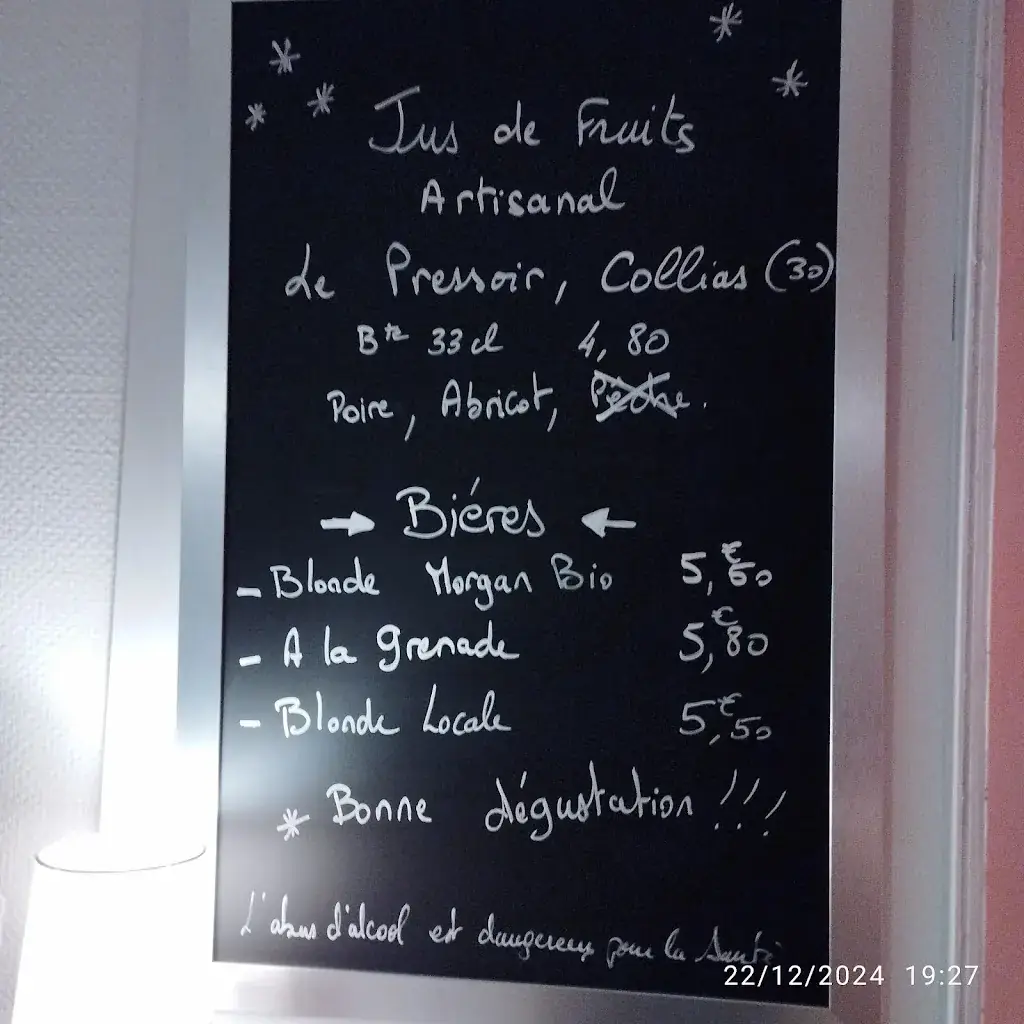 Jus de Fruits
Artisanal
Le Pressoir, Collias (30)
Bte 33 cl 4,80
Poire, Abricot, Pêche.
→ Biéres ←
- Blonde Morgan Bio 5,€50
- A la grenade 5,€80
- Blonde Locale 5,€50
* Bonne dégustation !!!
L'abus d'alcool est dangereux pour la Santé
22/12/2024 19:27